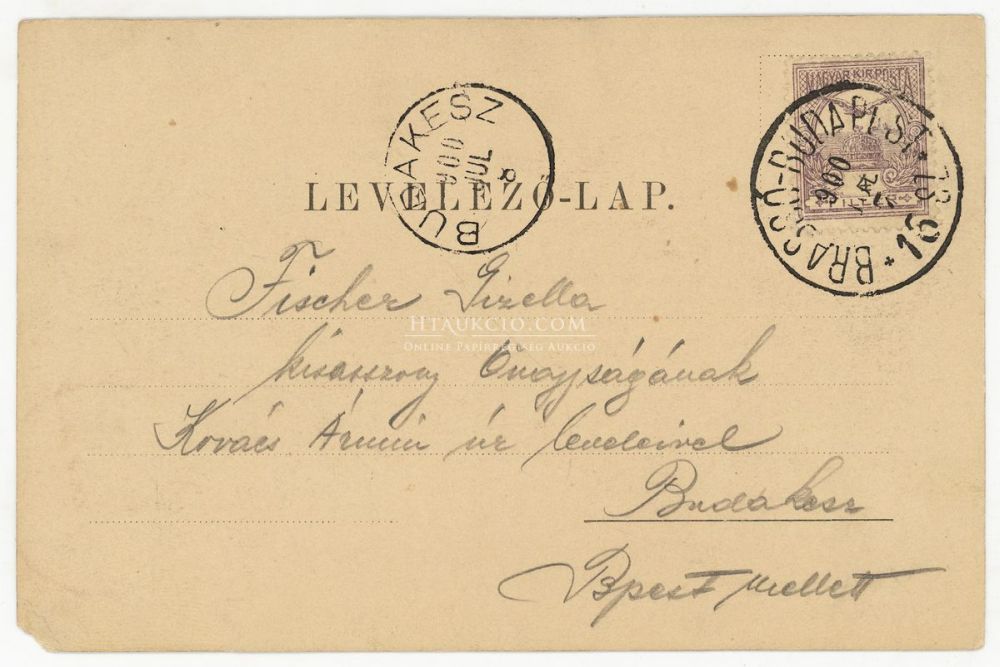 MAGYAR KIR. POSTA
BRASSÓ-BUDAPEST 78
900
16
BUDAKESZ
900
JUL
8
LEVELEZŐ-LAP.
Fischer Gizella
HTAUKCIO.COM
ONLINE PAPÍRRÉGISÉG AUKCIÓ
kisasszony Őnagyságának
Kovács Ármin úr leveleivel
Budakesz
Bpest mellett